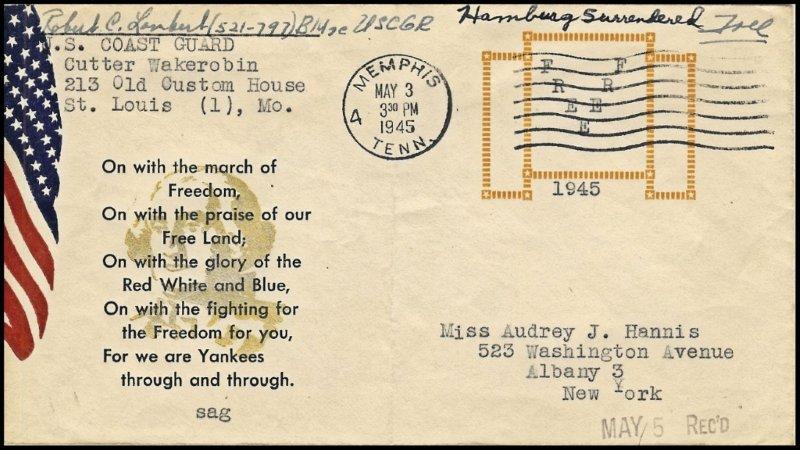 Robert C. (521-797) USCGR
Hamburg Surrendered Free
U.S. COAST GUARD
Cutter Wakerobin
213 Old Custom House
St. Louis (1), Mo.
MEMPHIS
MAY 3
3 30 PM
1945
4
TENN.
F F
R R
E E
E
1945
On with the march of
Freedom,
On with the praise of our
Free Land;
On with the glory of the
Red White and Blue,
On with the fighting for
the Freedom for you,
For we are Yankees
through and through.
sag
Miss Audrey J. Hannis
523 Washington Avenue
Albany 3
New York
MAY 5 REC'D